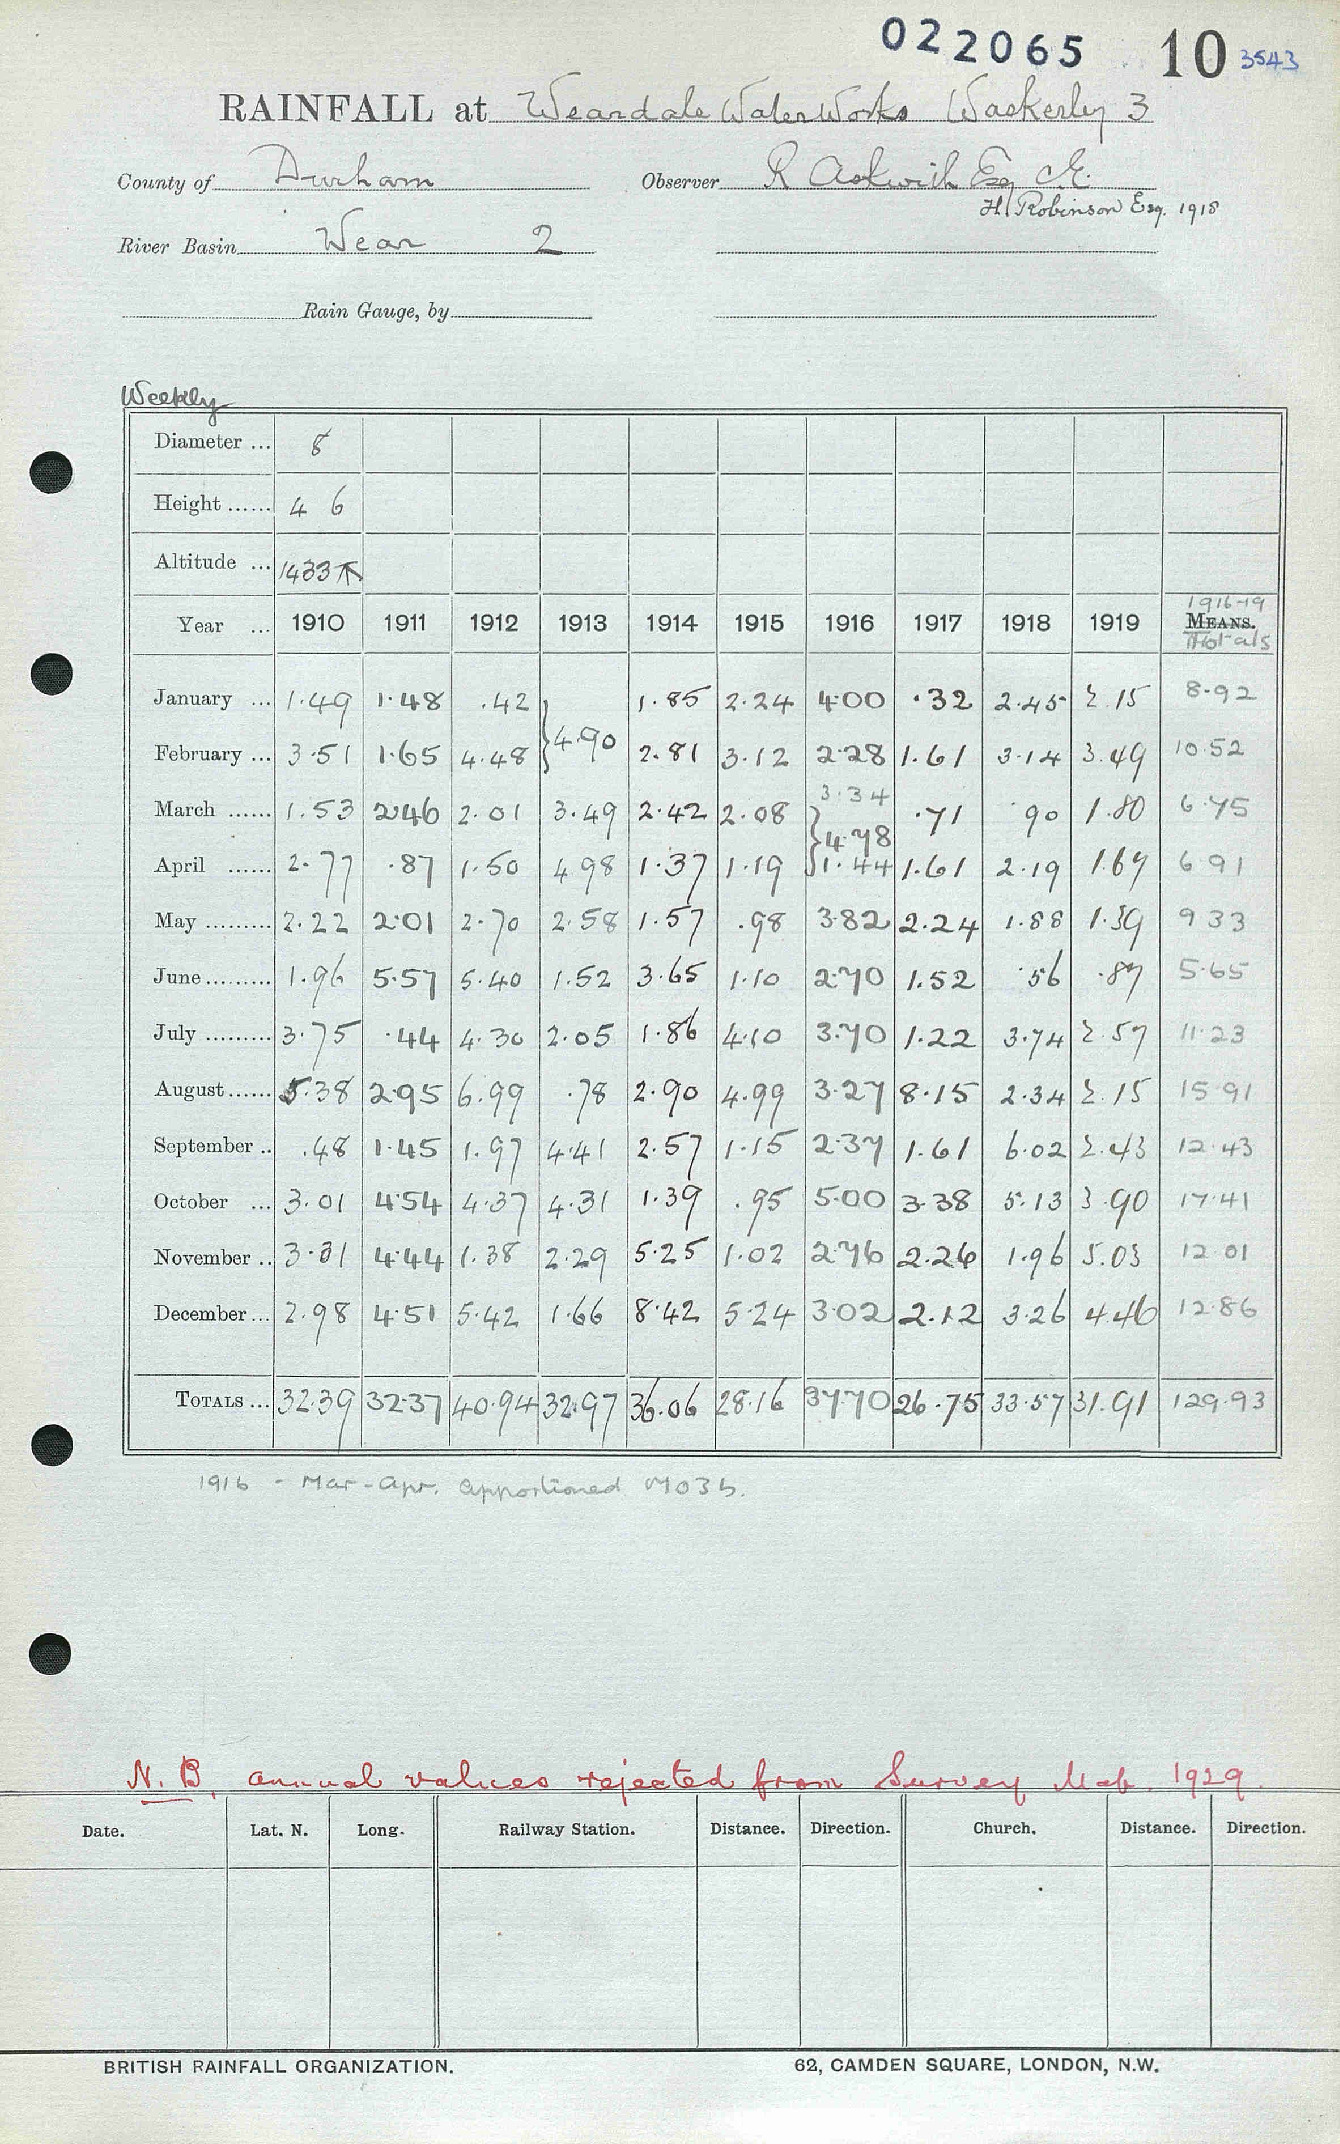 022065 10 3543
RAINFALL at Weardale Water Works Waskerley 3
County of Durham Observer R Askwith Esq C.E.
H. Robinson Esq. 1918
River Basin Wear 2
Rain Gauge, by
Weekly
Diameter ... 8
Height ...... 4 6
Altitude ... 1433
1916-19
Year ... 1910 1911 1912 1913 1914 1915 1916 1917 1918 1919 MEANS.
Totals
January ... 1.49 1.48 .42 1.85 2.24 4.00 .32 2.45 2.15 8.92
4.90
February ... 3.51 1.65 4.48 2.81 3.12 2.28 1.61 3.14 3.49 10.52
March ...... 1.53 2.46 2.01 3.49 2.42 2.08 3.34 .71 .90 1.80 6.75
4.78
April ...... 2.77 .87 1.50 4.98 1.37 1.19 1.44 1.61 2.19 1.67 6.91
May ......... 2.22 2.01 2.70 2.58 1.57 .98 3.82 2.24 1.88 1.39 9.33
June ......... 1.96 5.57 5.40 1.52 3.65 1.10 2.70 1.52 .56 .87 5.65
July ......... 3.75 .44 4.30 2.05 1.86 4.10 3.70 1.22 3.74 2.57 11.23
August ...... 5.38 2.95 6.99 .78 2.90 4.99 3.27 8.15 2.34 2.15 15.91
September .. .48 1.45 1.97 4.41 2.57 1.15 2.37 1.61 6.02 2.43 12.43
October ... 3.01 4.54 4.37 4.31 1.39 .95 5.00 3.38 5.13 3.90 17.41
November .. 3.31 4.44 1.38 2.29 5.25 1.02 2.76 2.26 1.96 5.03 12.01
December ... 2.98 4.51 5.42 1.66 8.42 5.24 3.02 2.12 3.26 4.46 12.86
TOTALS ... 32.39 32.37 40.94 32.97 36.06 28.16 37.70 26.75 33.57 31.91 129.93
1916 - Mar-Apr. apportioned MO3b.
N.B. annual values rejected from Survey Mch. 1929.
Date. Lat. N. Long. Railway Station. Distance. Direction. Church. Distance. Direction.
BRITISH RAINFALL ORGANIZATION. 62, CAMDEN SQUARE, LONDON, N.W.